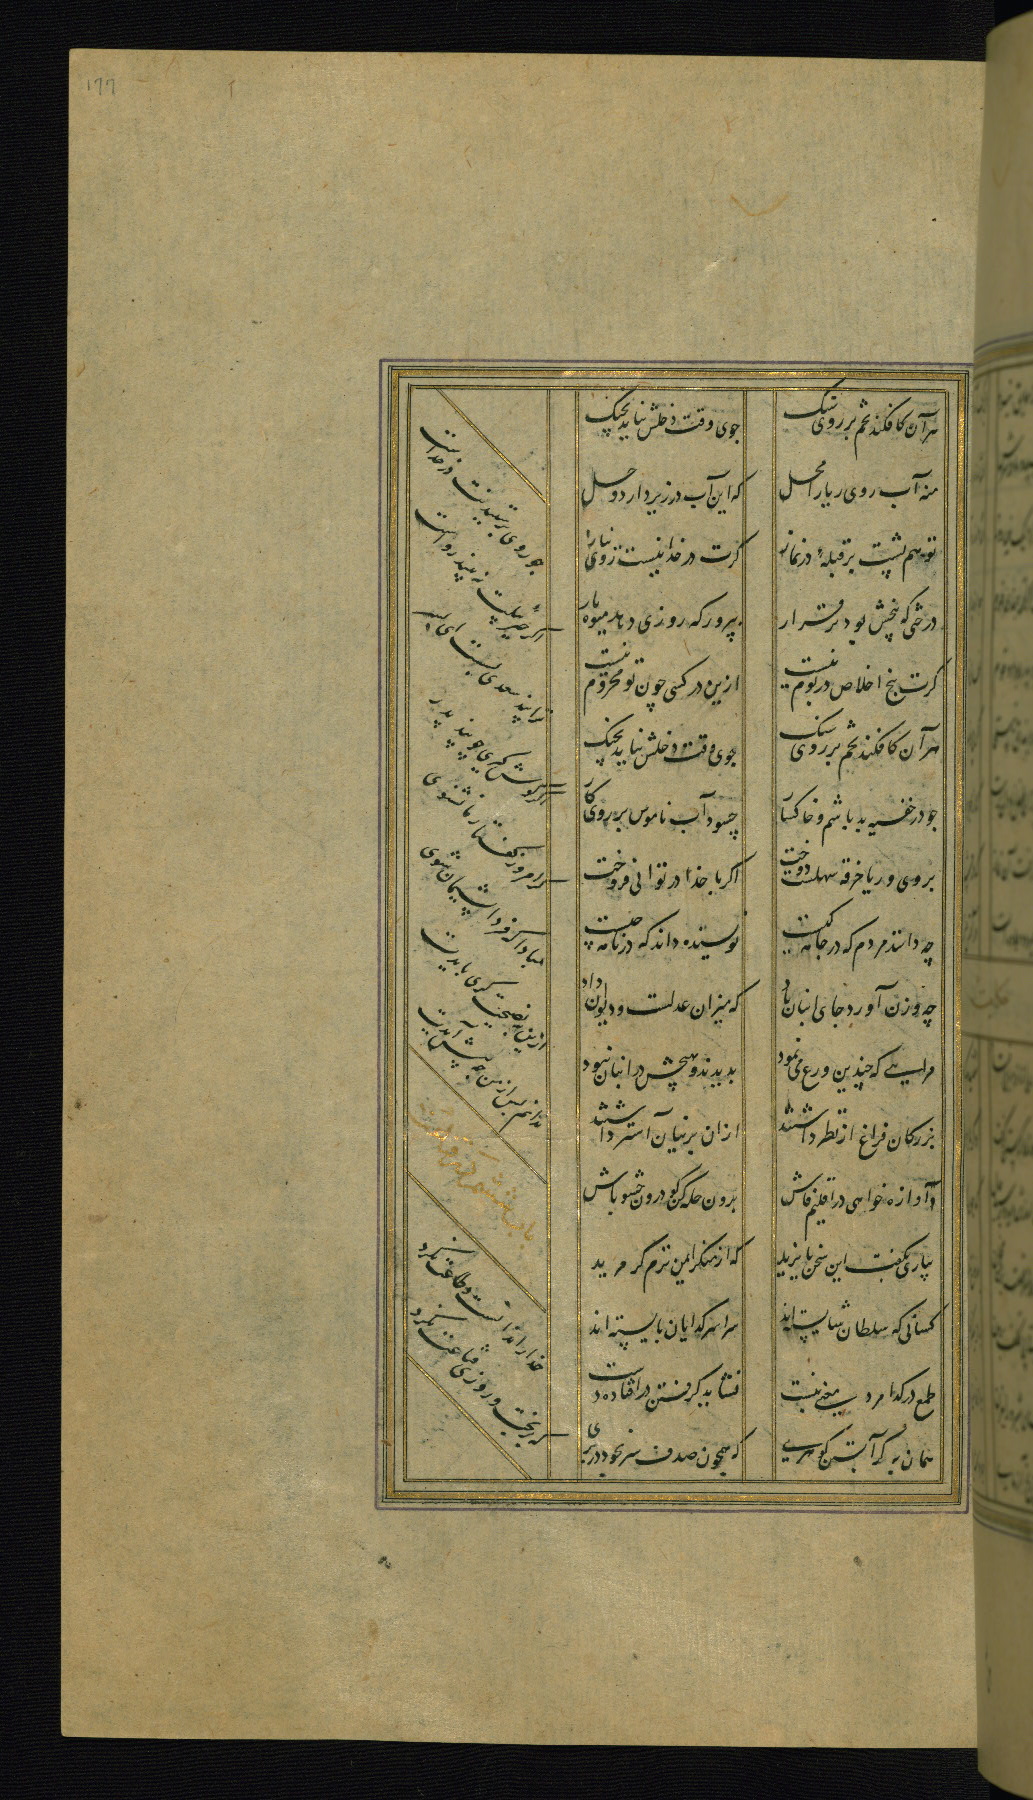 ۱۶۶
هر آن کافکند تخم بر روی سنک جوی وقت دخلش نیاید بچنک
منه آب روی ریا را محل که این آب در زیر دارد وحل
تو هم پشت بر قبلهٔ در نماز کرت در خدا نیست روی نیاز
درختی که بیخش بود برقرار بپرور که روزی دهد میوه بار
کرت بیخ اخلاص در بوم نیست ازین در کسی چون تو محروم نیست
هر آن کافکند تخم بر روی سنک جوی وقت دخلش نیاید بچنک
چو در خفیه بد باشم و خاکسار چه سود آب ناموس بر روی کار
بروی و ریا خرقه سهلست دوخت اکر با خدا در توانی فروخت
چه دانند مردم که در جامه کیست نویسنده داند که در نامه چیست
چه وزن آورد جای انبان باد که میزان عدلست و دیوان داد
مرایی که چندین ورع می نمود بدیدند و هیچش در انبان نبود
بزرکان فراغ از نظر داشتند ازان پرنیان آستر داشتند
ور آوازه خواهی در اقلیم فاش برون حله کن کو درون حشو باش
ببازی نکفت این سخن بایزید که از منکر ایمن ترم کز مرید
کسانی که سلطان و شاهنشهند سراسر کدایان
طمع در کدا مرد معنی نبست نشاید کرفتن در افتاده دست
همان به کر آبستن کوهری که همچون صدف سر بخود در بری
چو روی پرستیدنت در خداست
اکر جبرئیلت نه بیند رواست
ترا پند سعدی بست ای پسر
اکر کوش کیری چو پند پدر
کر امروز کفتار ما نشنوی
مبادا که فردا پشیمان شوی
ازین به نصیحت کری بایدت
ندانم پس از من چه پیش آیدت
باب ششم در قناعت
خدا را ندانست و طاعت نکرد
که بر بخت و روزی قناعت نکرد